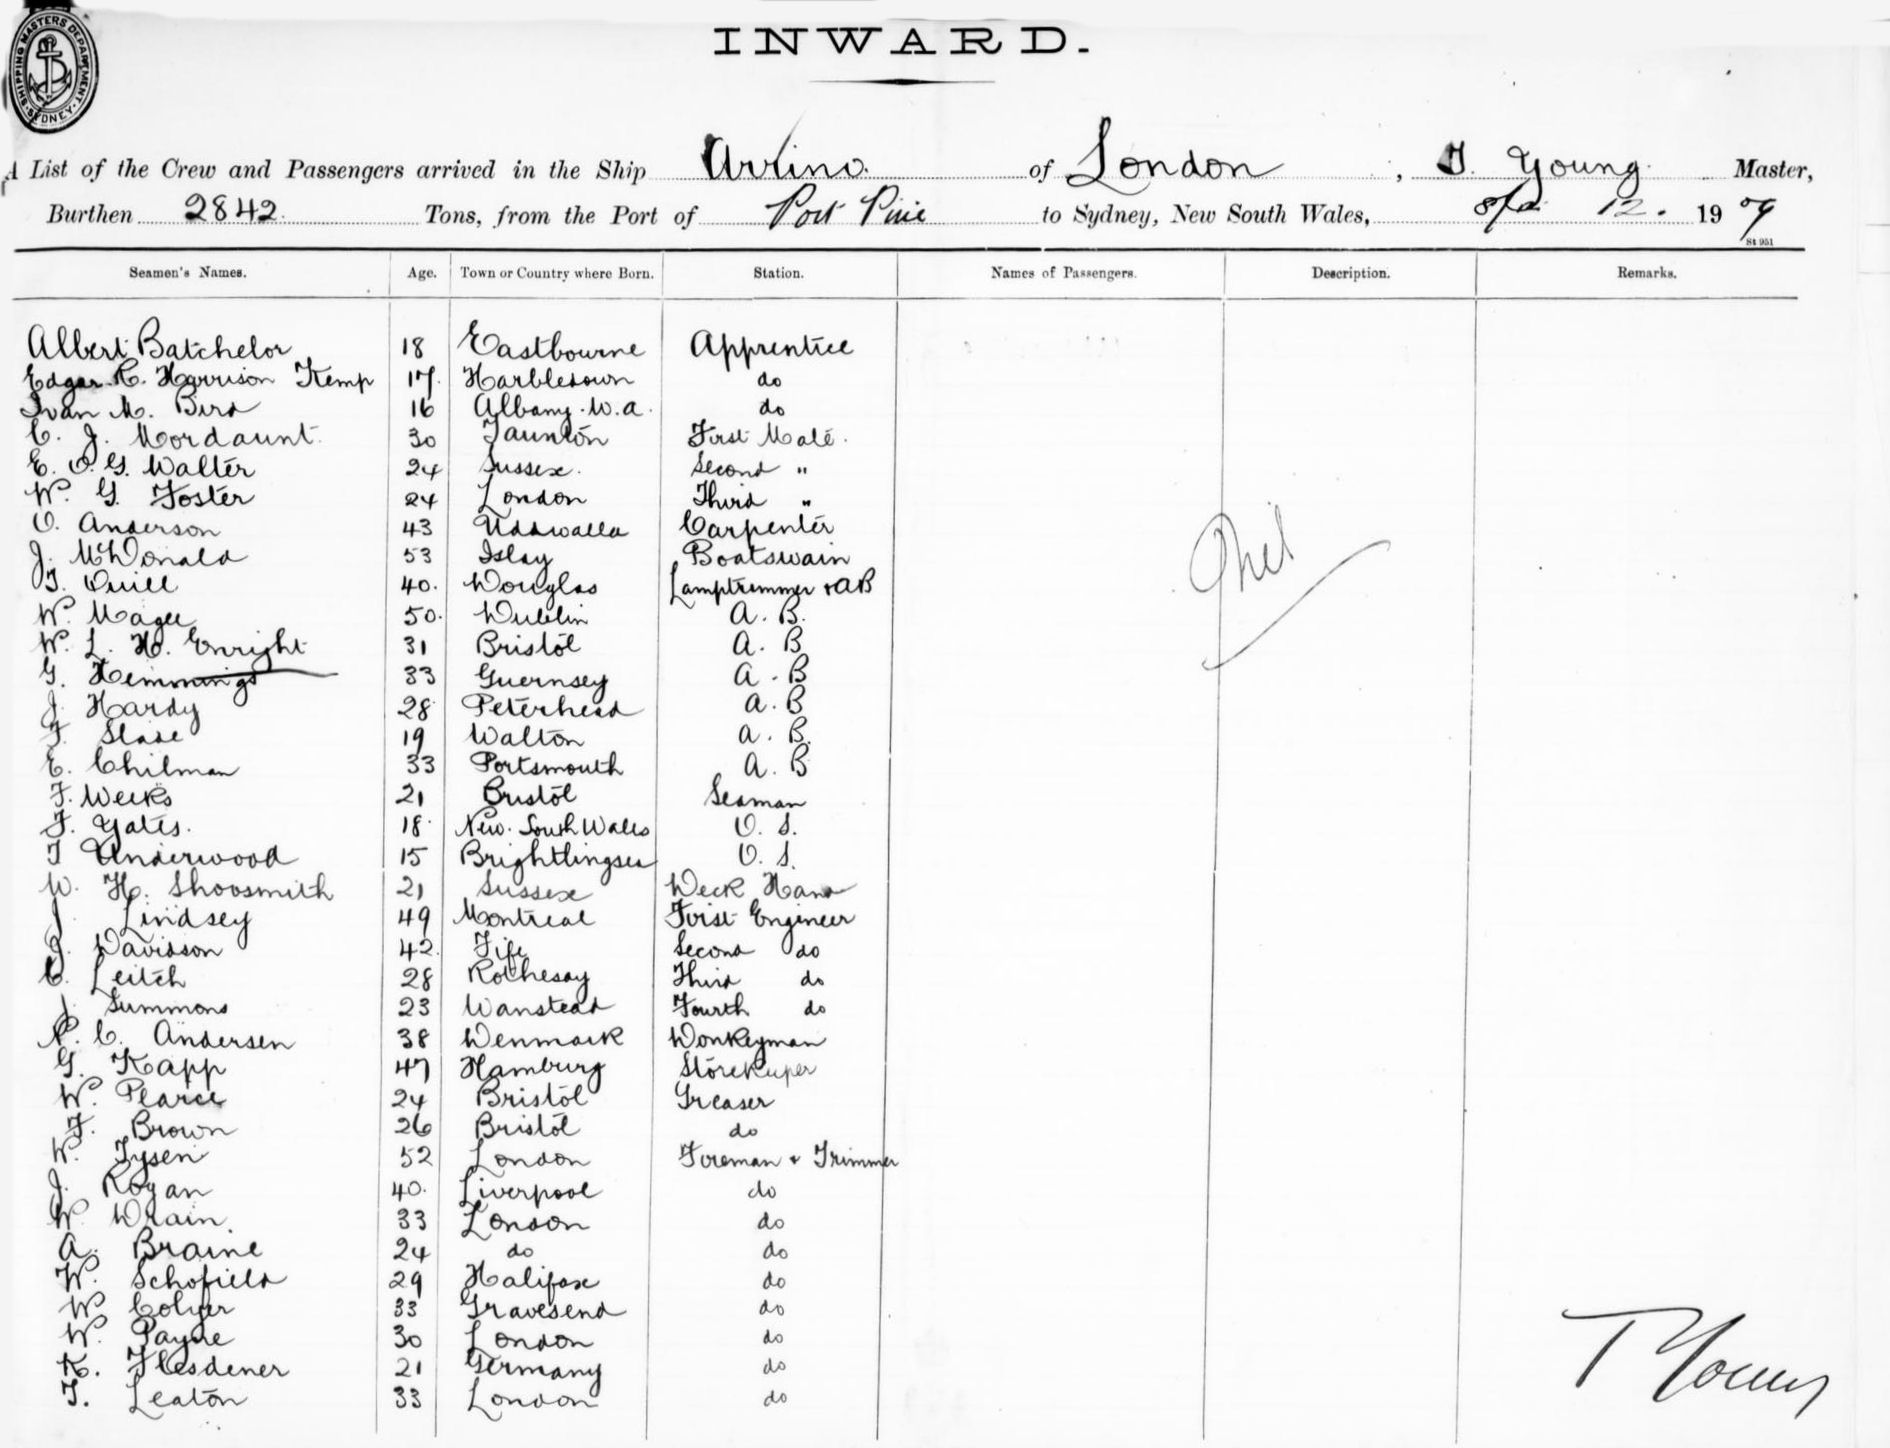 SHIPPING MASTERS DEPARTMENT. SYDNEY.
INWARD.
A List of the Crew and Passengers arrived in the Ship Arrino. of London, T. Young Master,
Burthen 2842. Tons, from the Port of Port Pirie to Sydney, New South Wales, 12. 1909
St 951
Seamen's Names. Age. Town or Country where Born. Station. Names of Passengers. Description. Remarks.
Albert Batchelor 18 Eastbourne Apprentice
Edgar R. Harrison Kemp 17. Harbledown do
Ivan M. Bird 16 Albany. W.A. do
C. J. Mordaunt. 30 Taunton First Mate.
E. O. G. Walter 24 Sussex. Second "
W. G. Foster 24 London Third "
O. Anderson 43 Uddwalla Carpenter
J. McDonald 53 Islay Boatswain
T. Quill 40. Douglas Lamptrimmer & AB
W. Magee 50. Dublin A. B.
W. L. H. Enright 31 Bristol A. B
G. Hemmings 33 Guernsey A. B
J. Hardy 28 Peterhead A. B
F. Slade 19 Walton A. B.
E. Chilman 33 Portsmouth A. B
F. Weeks 21 Bristol Seaman
F. Yates. 18. New. South Wales O. S.
T Underwood 15 Brightlingsea O. S.
W. H. Shoosmith 21 Sussex Deck Hand
J. Lindsey 49 Montreal First Engineer
J. Davidson 42. Fife Second do
C. Leitch 28 Rothesay Third do
J. Summons 23 Wanstead Fourth do
P. C. Andersen 38 Denmark Donkeyman
G. Kapp 47 Hamburg Storekeeper
W. Pearce 24 Bristol Greaser
F. Brown 26 Bristol do
W. Tysen 52 London Fireman & Trimmer
J. Rogan 40. Liverpool do
W Drain. 33 London do
A. Braine 24 do do
W. Schofield 29 Halifax do
W Colyer 33 Gravesend do
W. Payne 30 London do
K. Flesdener 21 Germany do
T. Leaton 33 London do
T Young